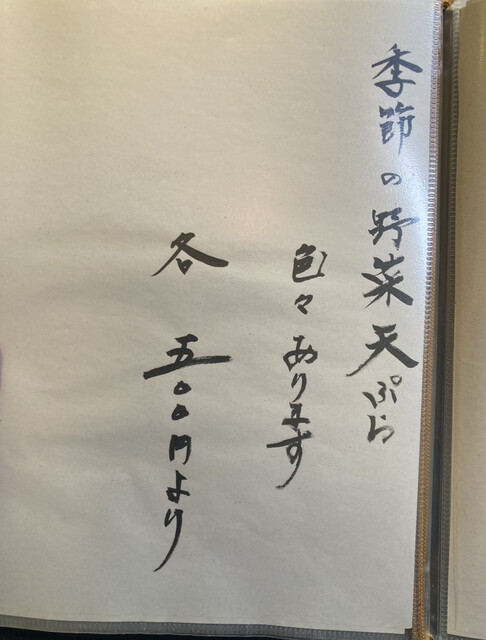 季節の野菜天ぷら
色々あります
各 五〇〇円より